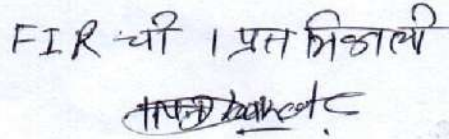 FIR ची 1 प्रत मिळाली